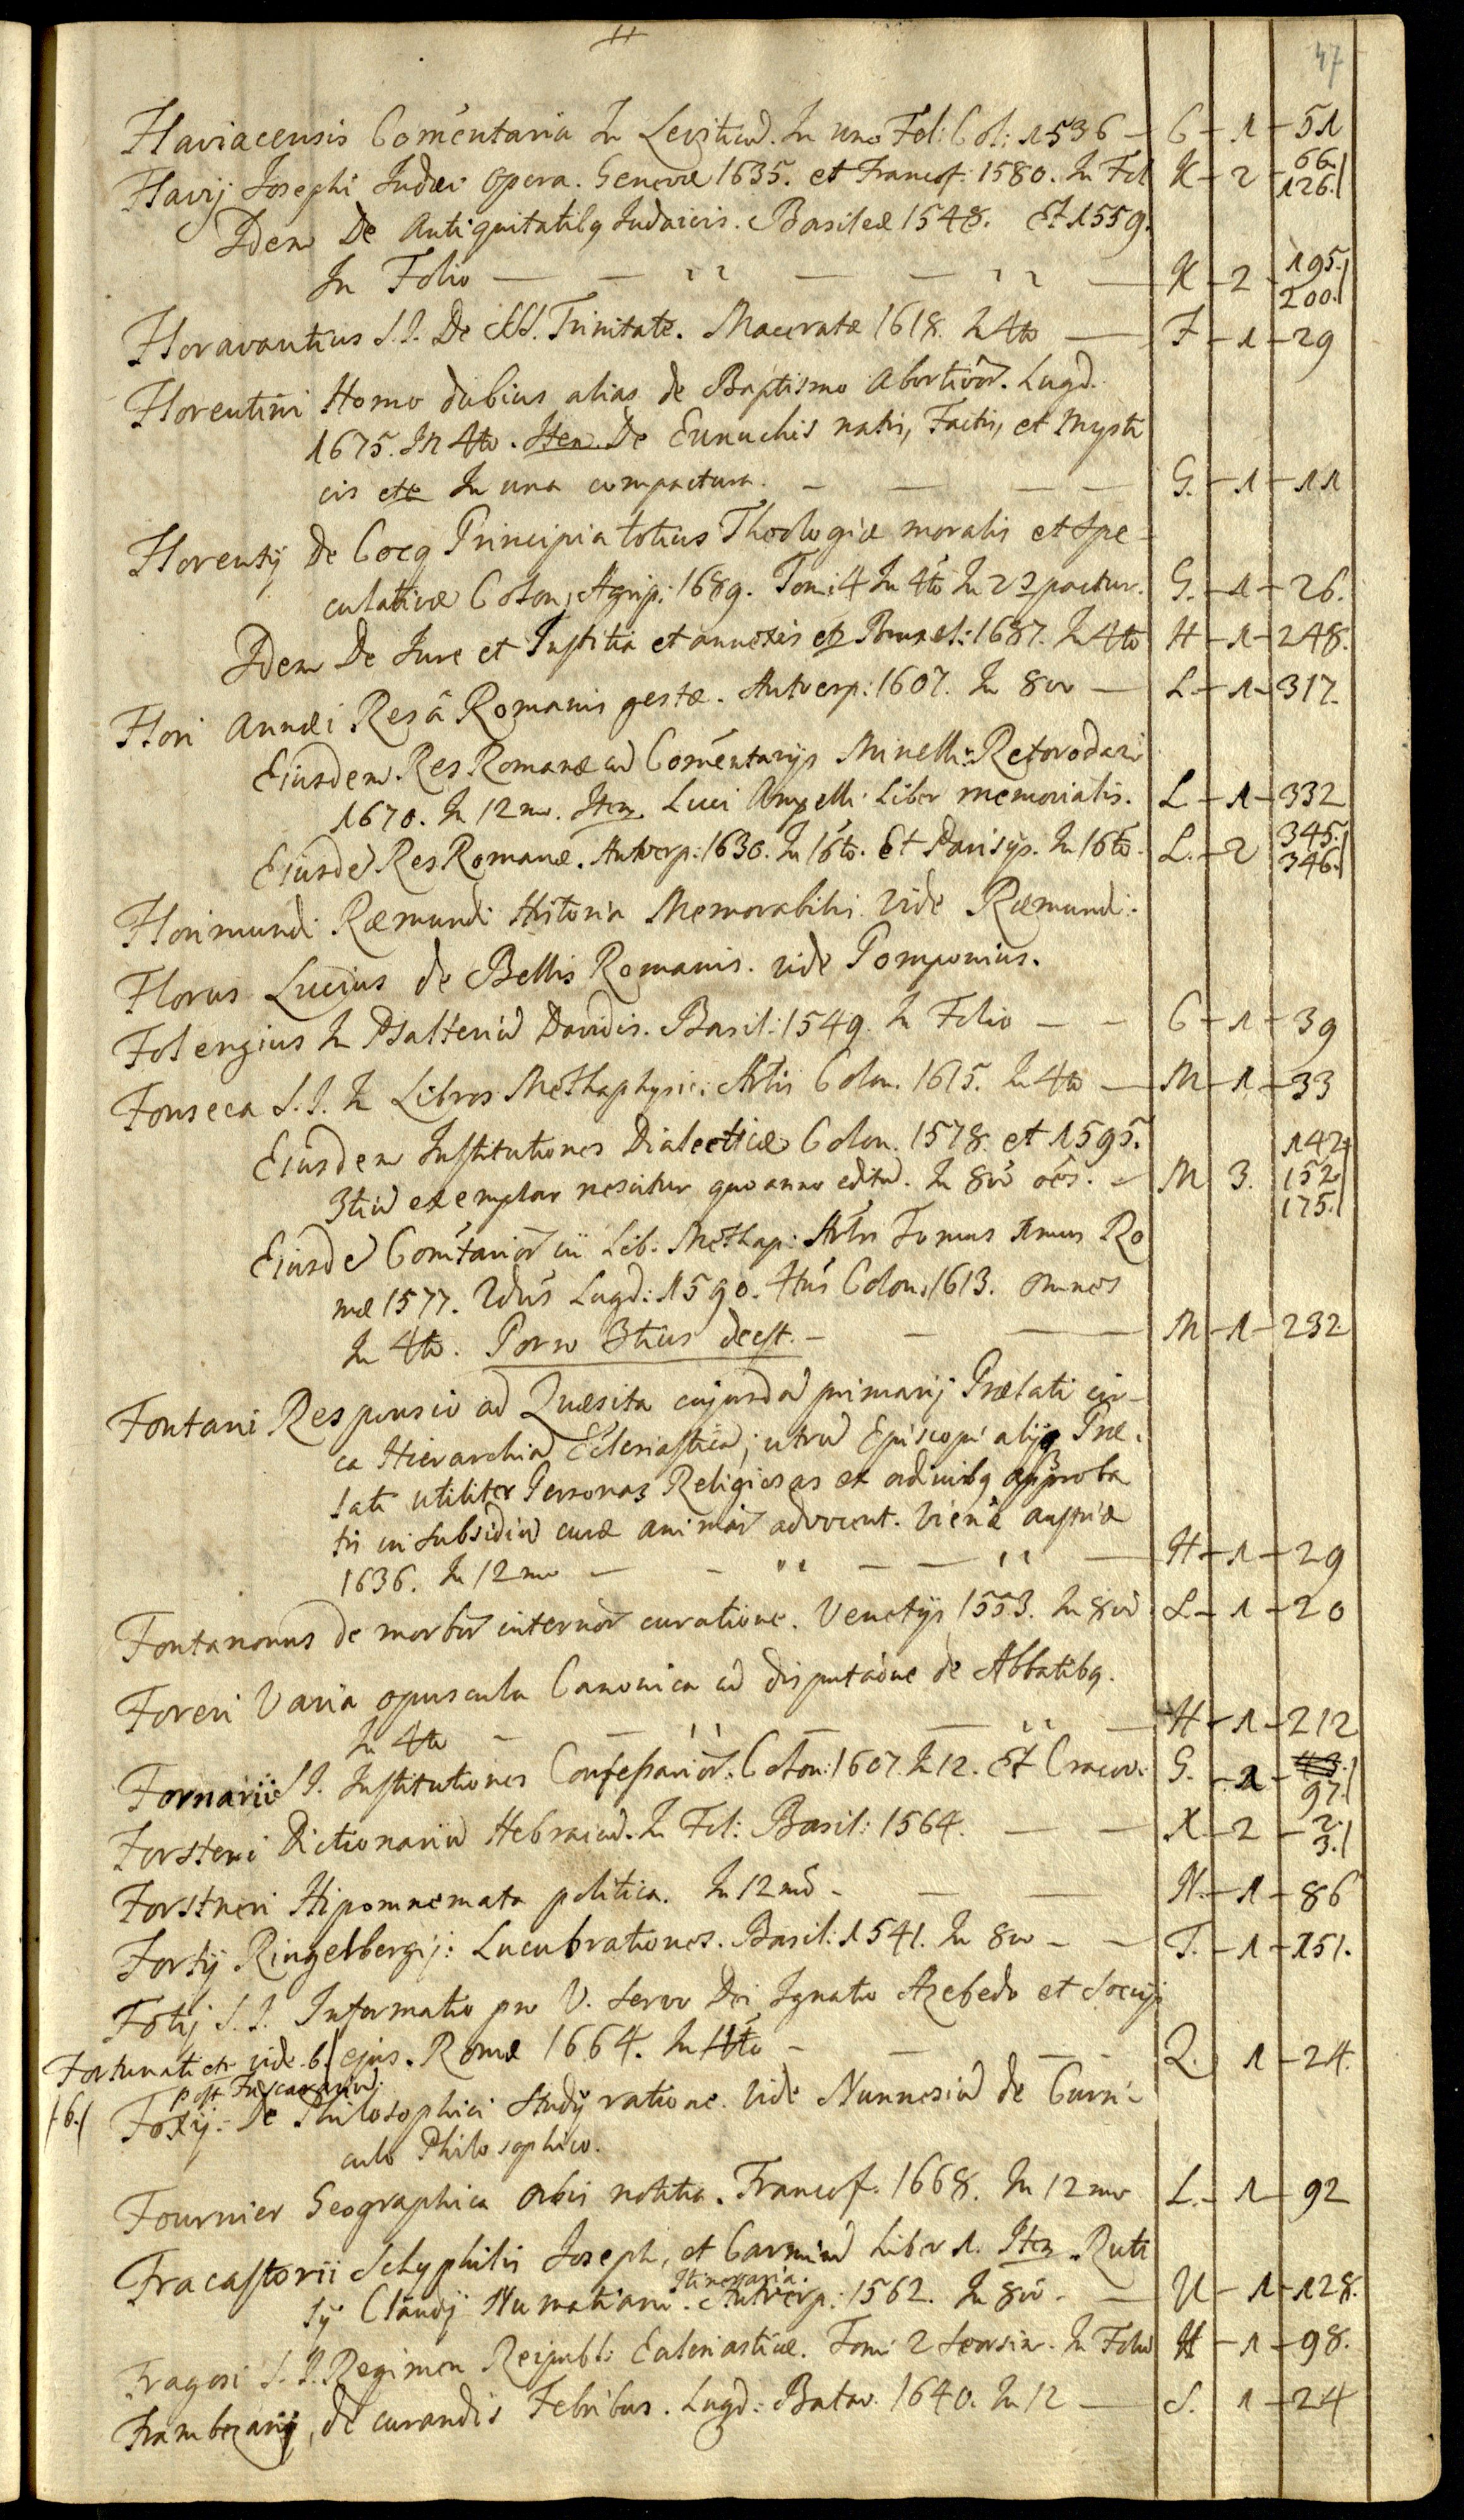 47
Flaviacensis Comentaria In Leviticu. In uno Fol: Col: 1536 - C - 1 - 51
Flavij Josephi Judæi Opera. Genevæ 1635. et Francof: 1580. In Fol K - 2 - 66. 126.
Idem De Antiquitatibq Judaicis. Basileæ 1548. Et 1559.
In Folio - K - 2 - 195. 200.
Floravantius S.I. De SS. Trinitate. Maceratæ 1618. In 4to - F - 1 - 29
Florentini Homo dubius alias de Baptismo Abortivor. Lugd.
1675. In 4to. Item. De Eunuchis natis, Factis, et Mysti
cis etc In una compactura. - G. - 1 - 11
Florentij De Cocq Principia totius Theologiæ moralis et Spe-
culativæ Colon: Agrip: 1689. Tomi 4 In 4to In 2 compactur. G. - 1 - 26.
Idem De Jure et Justitia et annexis etc Bruxel: 1687. In 4to H - 1 - 248.
Flori Annæi Res à Romanis gestæ. Antverp: 1607. In 8vo - L. - 1 - 317.
Ejusdem Res Romanæ cu Comentarijs Minelli: Roterodami
1670. In 12mo. Item. Luci Ampelli Liber memorialis. L - 1 - 332
Ejusde Res Romanæ. Antverp: 1630. In 16to. Et Parisijs. In 16to. L. - 2 345. 346.
Florimundi Ræmundi Historia Memorabilis vide Ræmundi.
Florus Lucius de Bellis Romanis. vide Pomponius.
Folengius In Psalteriu Davidis. Basil: 1549. In Folio - C - 1 - 39
Fonseca S.I. In Libros Methaphysic: Artis Colon. 1615. In 4to - M - 1 - 33
Ejusdem Institutiones Dialecticæ Colon. 1578. et 1595.
3tiu exemplar nescitur quo anno editu. In 8vo oes. - M 3. 142. 152. 175.
Ejusde Comtarior in Lib: Methap: Artis Tomus 1mus Ro
mæ 1577. 2dus Lugd: 1590. 4tus Colon. 1613. omnes
In 4to. Porro 3tius deest. - M - 1 - 232
Fontani Responsio ad Quæsita cujusda primarij Prælati cir-
ca Hierarchia Ecclesiastica; utru Episcopi alijq Præ-
lati utiliter Personas Religiosas et ordinibq approba
tis in subsidiu curæ animar advocent. Viennæ Austriæ
1636. In 12mo - H - 1 - 29
Fontanonus de morbor internor curatione. Venetijs 1553. In 8vo L - 1 - 20
Foreri Varia opuscula Canonica cu disputaõne de Abbatibq.
In 4to - H - 1 - 212
Fornarii S.I. Institutiones Confessarior. Colon: 1607. In 12. Et Cracov. G. - 1 - 97.
Forsteri Dictionariu Hebraicu. In Fol: Basil: 1564. - X - 2 - 2. 3.
Forstneri Hipomnemata politica. In 12mo - N. - 1 - 86
Fortij Ringelbergij: Lucubrationes. Basil: 1541. In 8vo - T. - 1 - 151.
Fotij S.I. Informatio pro V. Servo Dei Ignatio Azebedo et Socijs
ejus. Romæ 1664. In 4to - Q. 1 - 24.
Fortunati etc vide b.
post Fuscararu.
b.
Foxij - De Philosophici Studij ratione. Vide Nunnesiu de Curri-
culo Philosophico.
Fournier Geographica orbis notitia. Francof. 1668. In 12mo L. - 1 - 92
Fracastorii Schyphilis Joseph, et Carminu Liber 1. Item. Ruti
lij Claudij Numatiani Itineraria. Antverp: 1562. In 8vo. - U - 1 - 128.
Fragosi S.I. Regimen Reipubl: Eclesiasticæ. Tomi 2 Seorsim. In Folio H - 1 - 98.
Frambezarij, de curandis Febribus. Lugd: Batav. 1640. In 12 - S. 1 - 24